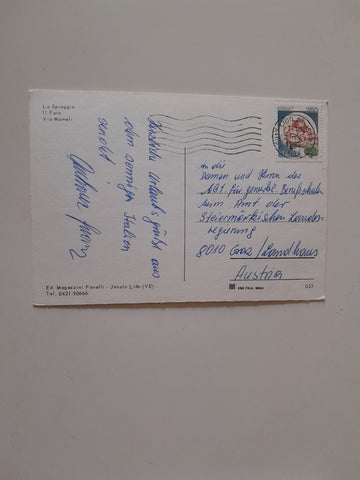 La Spiaggia
Il Faro
Via Mameli
Herzliche Urlaubsgrüße aus
dem sonnigen Italien
sendet
An die
Damen und Herren der
Abt. für gewerbl. Berufsschulen
beim Amt der
Steiermärkischen Landes-
regierung
8010 Graz / Landhaus
Austria
Ed. Magazzini Favelli - Jesolo Lido (VE)
Tel. 0421-90666